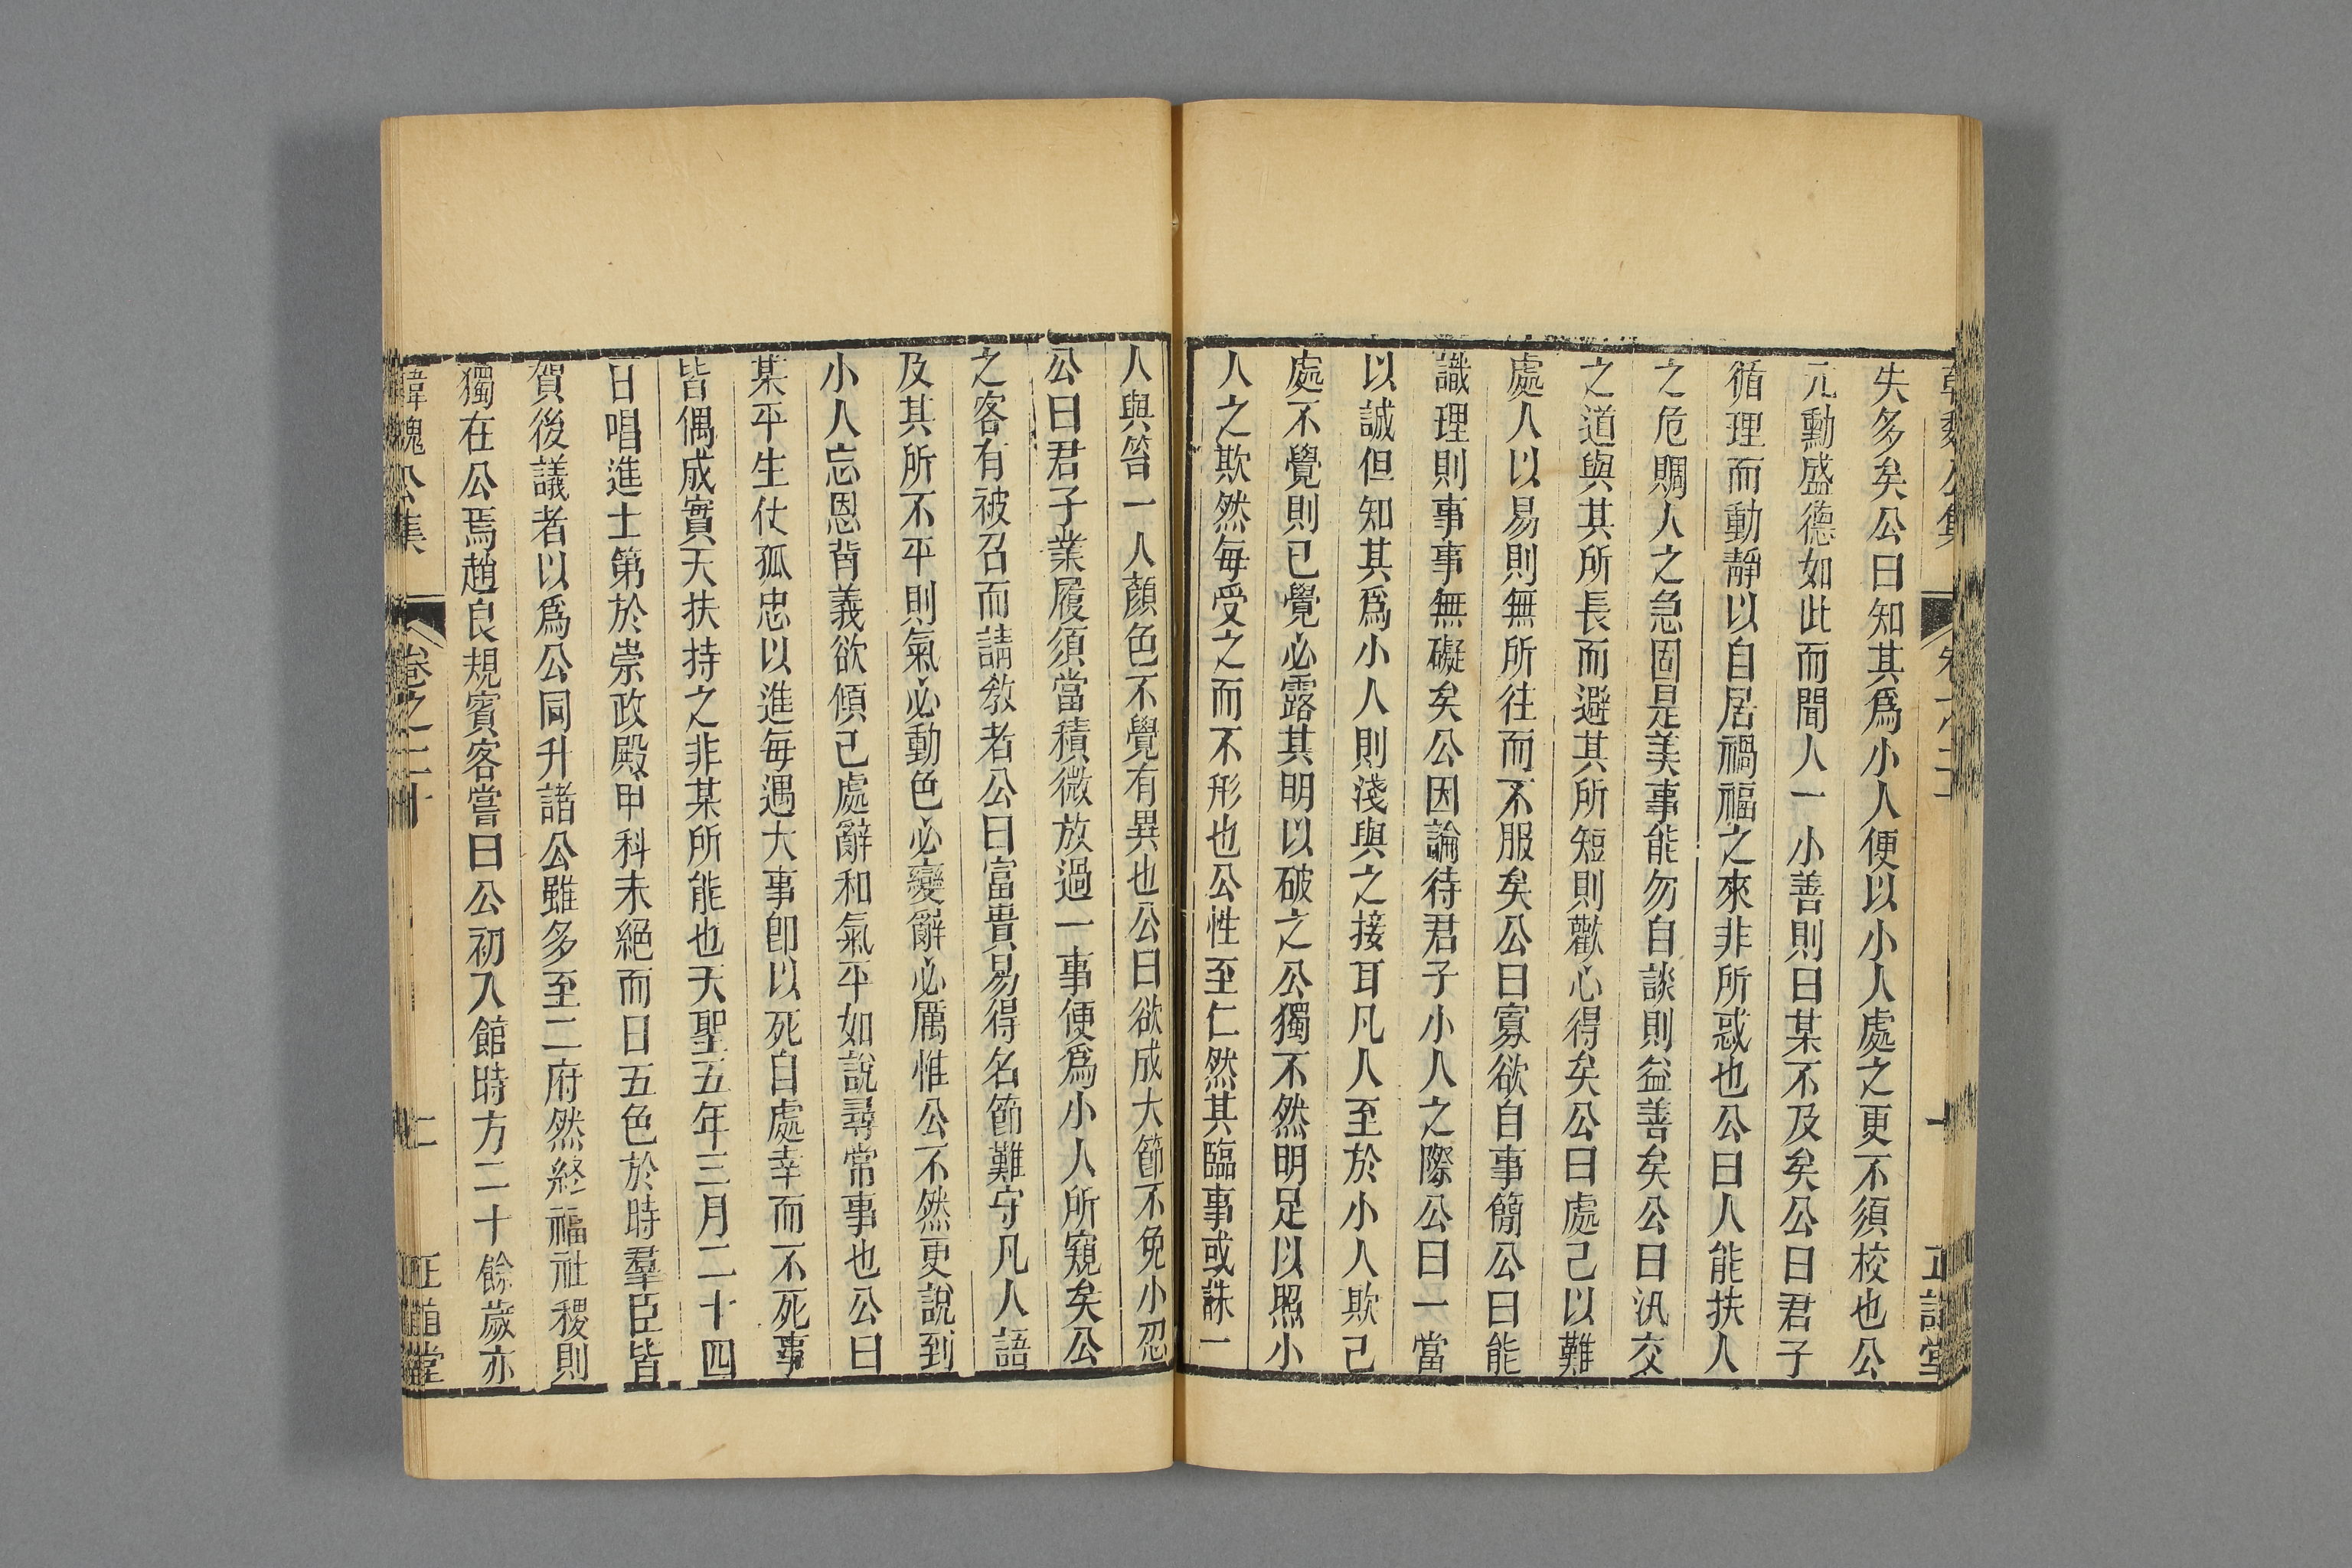 失多矣公曰知其爲小人便以小人處之更不須校也公
元勳盛德如此而聞人一小善則曰某不及矣公曰君子
循理而動靜以自居禍福之來非所惑也公曰人能扶人
之危賙人之急固是美事能勿自談則益善矣公曰汎交
之道與其所長而避其所短則歡心得矣公曰處己以難
處人以易則無所往而不服矣公曰寡欲自事簡公曰能
識理則事事無礙矣公因論待君子小人之際公曰一當
以誠但知其爲小人則淺與之接耳凡人至於小人欺己
處不覺則已覺必露其明以破之公獨不然明足以照小
人之欺然每受之而不形也公性至仁然其臨事或誅一
人與笞一人顏色不覺有異也公曰欲成大節不免小忍
公曰君子業履須當積微放過一事便爲小人所窺矣公
之客有被召而請敎者公曰富貴易得名節難守凡人語
及其所不平則氣必動色必變辭必厲惟公不然更說到
小人忘恩背義欲傾己處辭和氣平如說尋常事也公曰
某平生仕孤忠以進每遇大事卽以死自處幸而不死事
皆偶成實天扶持之非某所能也天聖五年三月二十四
日唱進士第於崇政殿甲科未絕而日五色於時羣臣皆
賀後議者以爲公同升諸公雖多至二府然終福社稷則
獨在公焉趙良規賓客嘗曰公初入館時方二十餘歲亦
韓魏公集 卷之二十 上 正誼堂